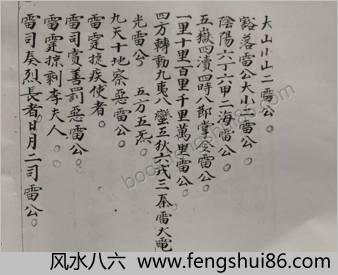 大山小山二雷公。
豁落雷公大小二雷公。
陰陽六丁六甲二海雷公。
五嶽四瀆四時八節掌令雷公。
一里十里百里千里萬里雷公。
四方轉動九夷八蠻五狄六戎三秦雷火電
光雷公。五方五炁。
九天十地察惡雷公。
雷霆捉疾使者。
雷司賞善罰惡雷公。
雷霆掠剩李夫人。
雷司奏烈長者日月二司雷公。
风水八六 www.fengshui86.com